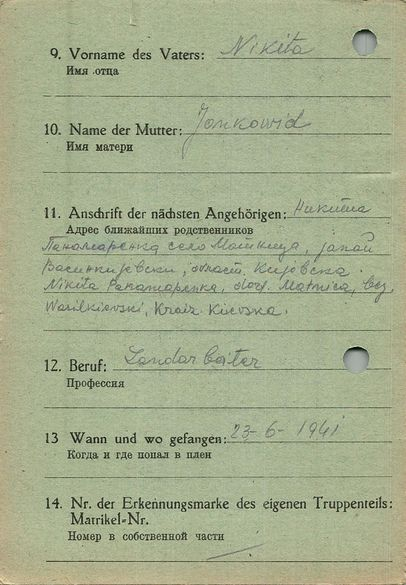 9. Vorname des Vaters: Nikita
Имя отца
10. Name der Mutter: Jonkowid
Имя матери
11. Anschrift der nächsten Angehörigen: Никита
Адрес ближайших родственников
село
Nikita Panamarenka, dorf. Matnica, bez.
Wasilkiewski, Kreiz Kiewska.
12. Beruf: Landarbeiter
Профессия
13 Wann und wo gefangen: 23-6-1941
Когда и где попал в плен
14. Nr. der Erkennungsmarke des eigenen Truppenteils:
Matrikel-Nr.
Номер в собственной части